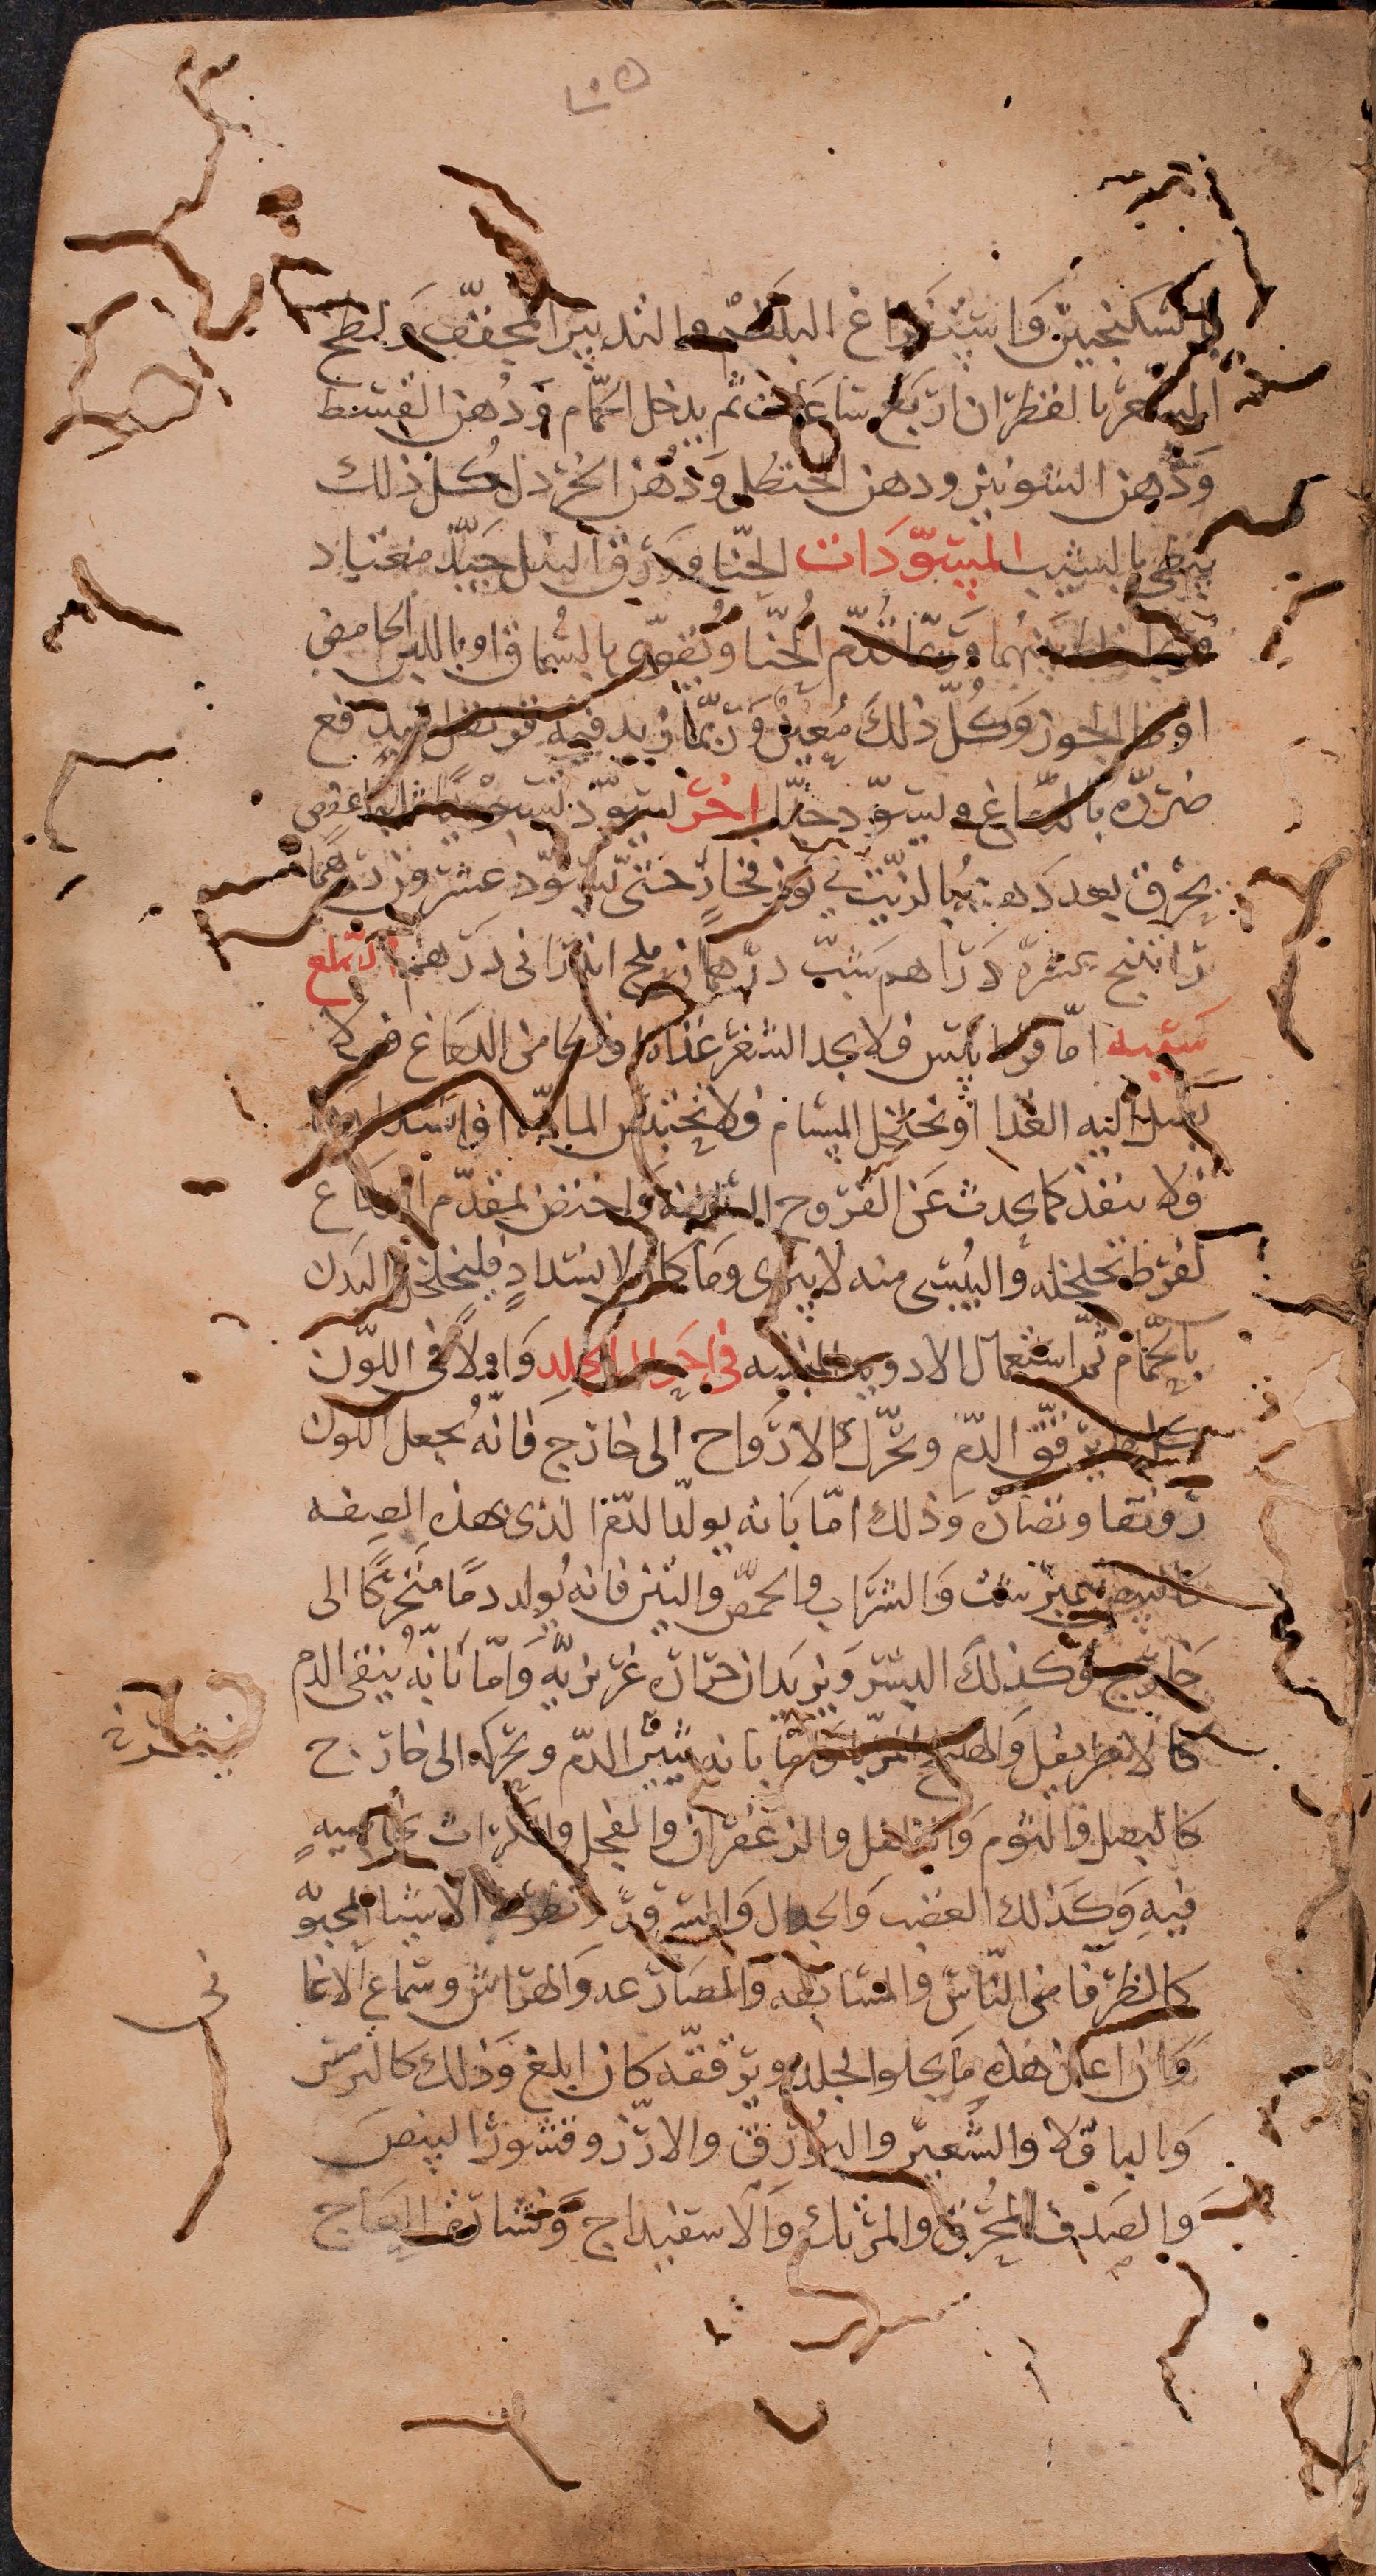 بالسكنجبين وَاستفراغ البلغم والتدبير المجفف وَلطخ
الشعر بالقطران اربَع ساعَات ثم يدخل الحمّام وَدُهن القسط
وَدهن الشونيز ودهن الحنظل وَدُهن الخردل كُل ذلك
يبطي بالشيب المسوّدَات الحنّا وَرق النيل جيّد معتاد
وربما خلط بينهُما وَربّما قُدّم الحُنّا وَتُقوّى بالسُماق او باللبن الحامض
او ما الجوز وَكُلّ ذلكَ مُعينٌ وَربّما زيد فيه قرنفل ليدفع
ضررّه بالدّماغ وليسوّد جدّا اخر يسوّد تسويدًا ثابتا عفص
يحرق بعد دَهنه بالزيت في كوز فخار حتى يسوّد عشرون درهمًا
راتنج عشرة دَراهم شبّ درهمان ملح اندراني درهم الصلع
سَببه امّا فرط يبس فلا يجد الشعر غذاء اوتطامن الدماغ فلا
يَصل اليه الغذا اوْتخلخل المسَام فلا تحتبس المادّة او انسدادها
فلا ينفذ كما يحدث عَن القرُوح واختص بمقدّم الدماغ
لفرط تخلخله وَاليُبسي منه لا يبرى وَمَا كان لانسدادٍ فليخلخل البَدن
بالحمّام ثمّ استعمال الادوية في احَوال الجلد وَاولاً في اللوّن
كل ما يرقّق الدّم ويحرّك الارواح الى خارج فَانّه يجعل اللّون
رونقا ونضارة وَذلك امّا بَانه يولّد الدّم الذى بهذه الصِفه
كالبيض نيمبرشت وَالشرَاب والحمّص والتين فانه يُولد دمًا مُتحركًا الى
خارج وَكذلكَ البُسر وَيزيدَان حرَارة غريزيّة وَامّا بَانهُ ينقى الدم
كالاطريفل وَالهليلج المربّا وامّا بانه يُنير الدّم ويحركه الى خارج
كالبصل وَالثوم وَالفلفل والزعفران والفجل والكراث بخاصيه
فيهِ وَكذلك الغضب وَالجدال وَالسرور الاشيا المحبوبه
كالظرفا من النّاس والمسَابقه وَالمصَارعه وَالهرَاش وسَماع الاغانى
وَان اعان هذه مَا يجلو الجلد ويرققه كان ابلغ وذلك كالترمس
وَالباقلا والشَعير والبُورق والارز وقشور البيض
وَالصَدف المحُرق والمرتك وَالاسفيداج وَنشارة العَاج